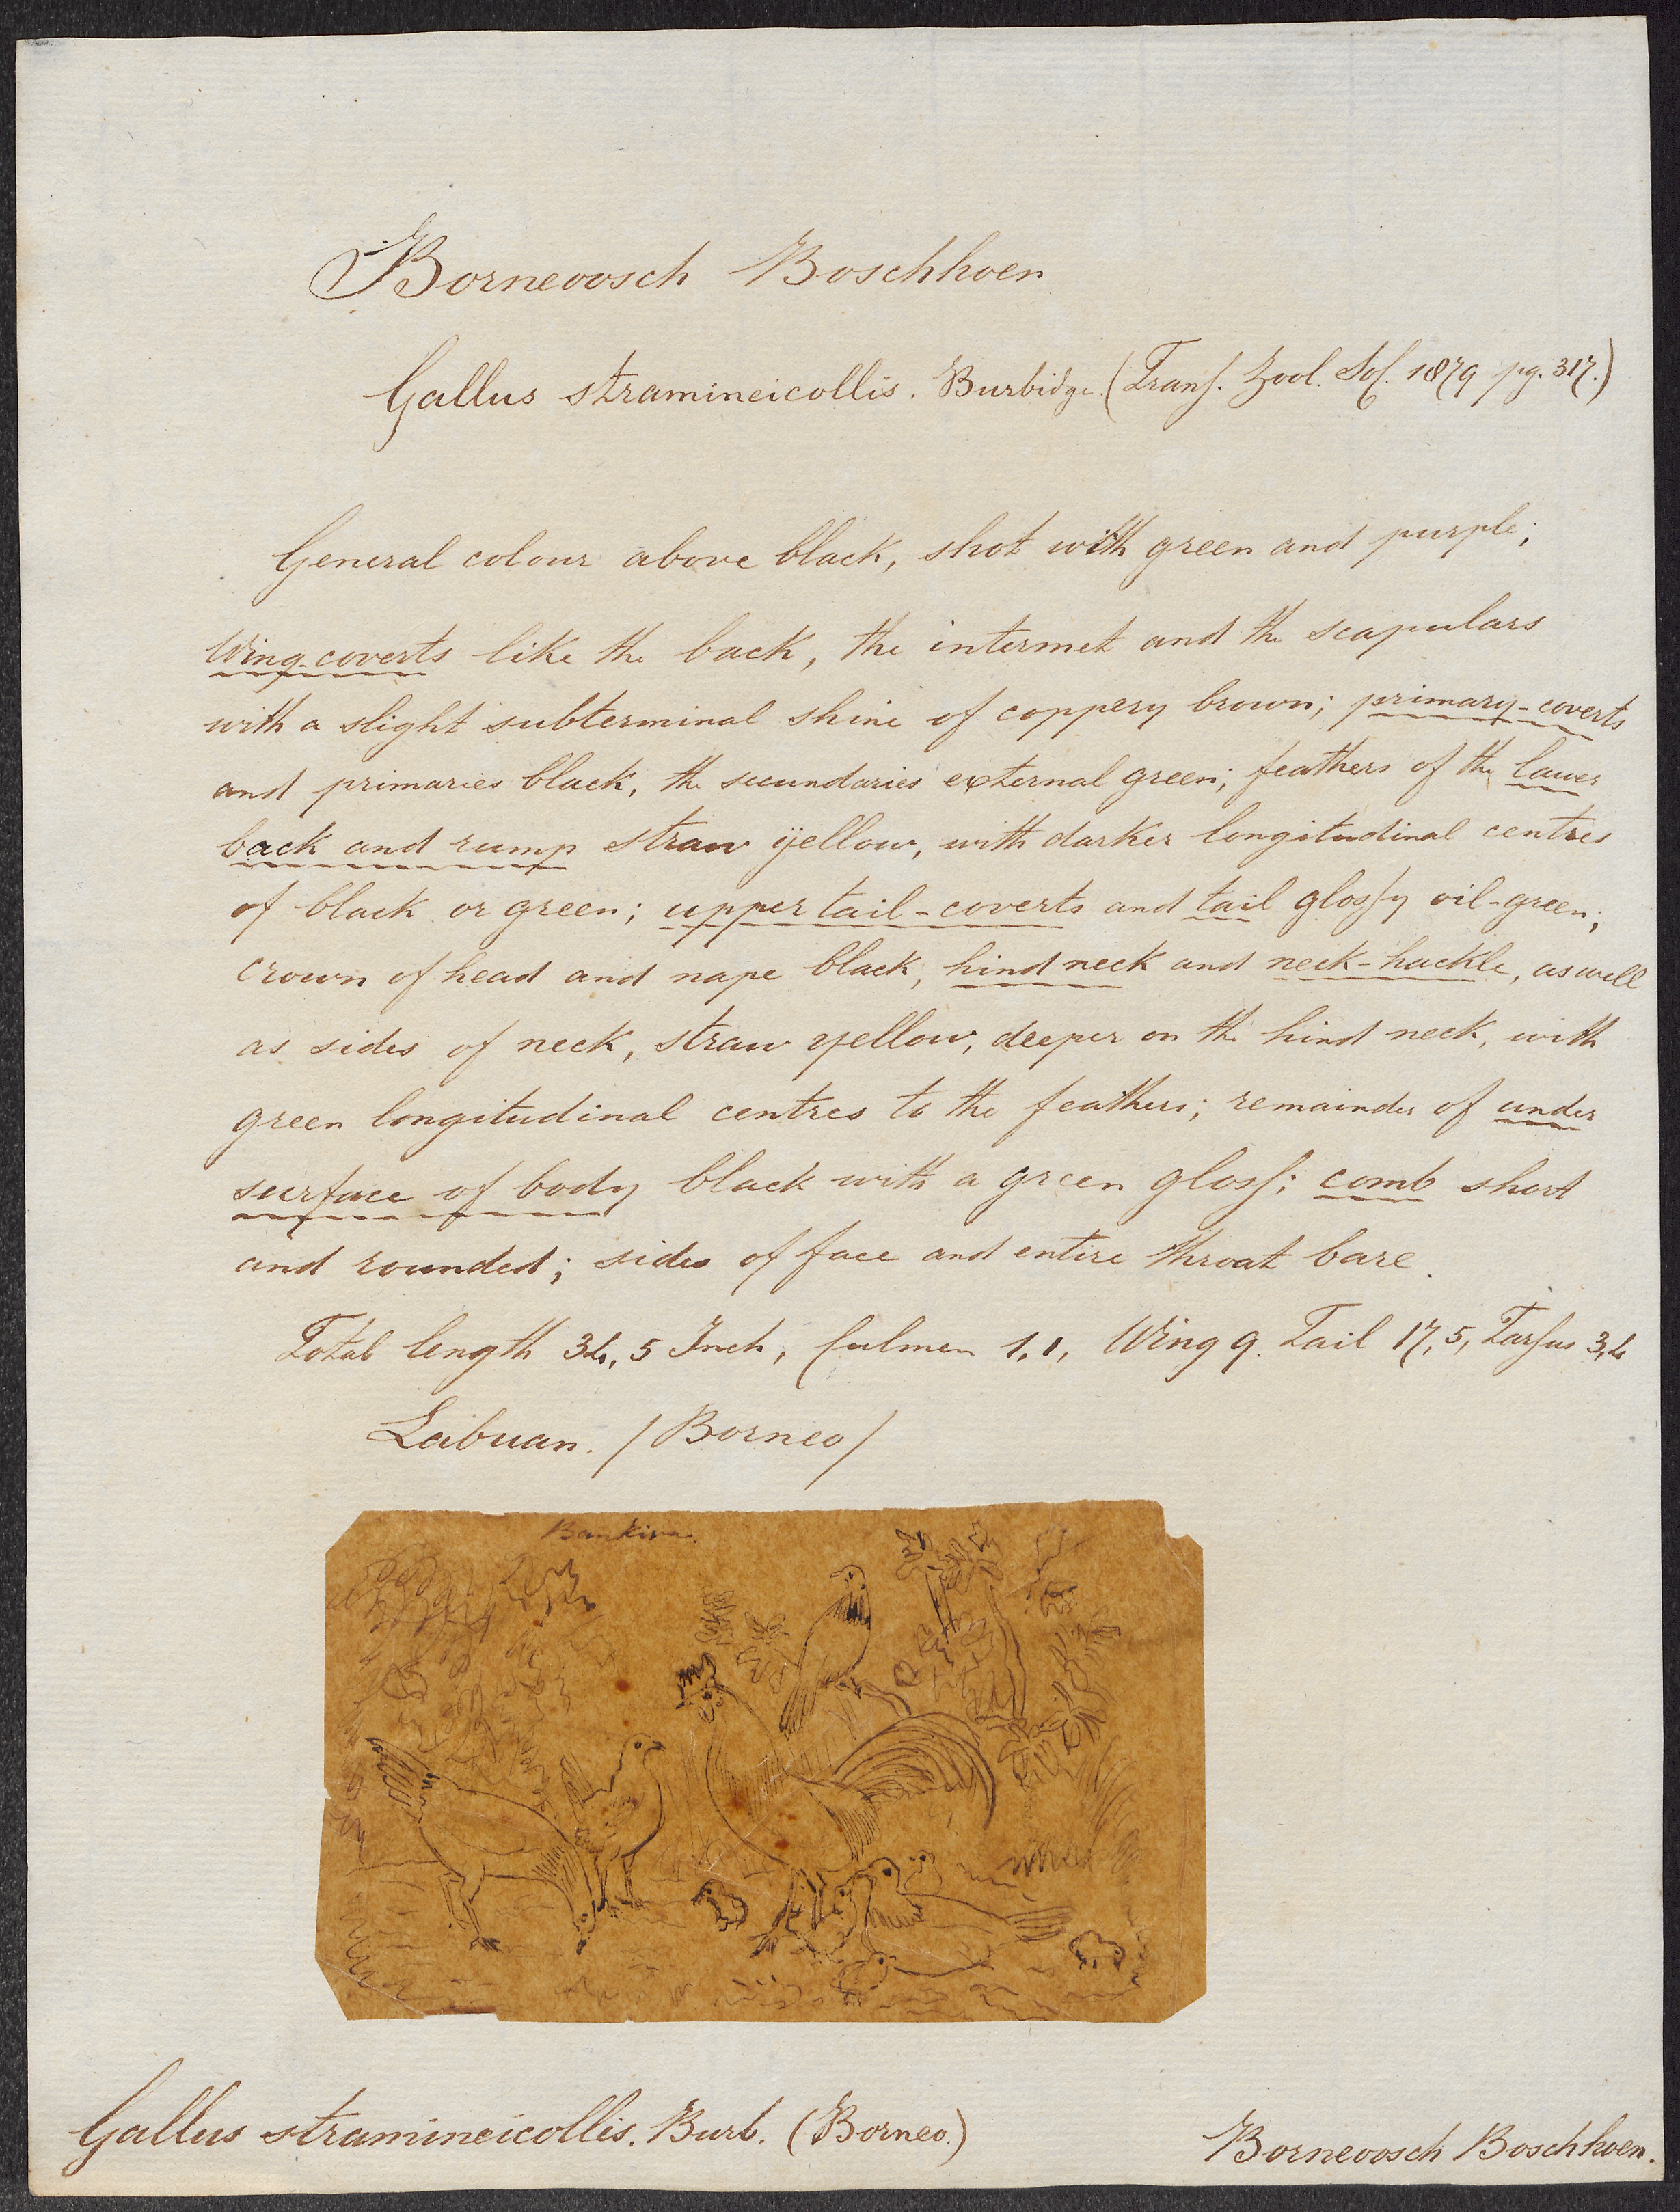 Borneoosch Boschhoen
Gallus stramineicollis. Burbidge. (Transs. Zool. Sos. 1879 pg. 317.)
General colour above black, shot with green and purple;
Wing-coverts like the back, the intermet and the scapulars
with a slight subterminal shine of coppery brown; primary-coverts
and primaries black, the secundaries external green; feathers of the lawer
back and rump straw yellow, with darker longitudinal centres
of black or green; upper tail-coverts and tail glossy oil-green;
crown of head and nape black, hind neck and neck-hackle, as well
as sides of neck, straw yellow, deeper on the hind neck, with
green longitudinal centres to the feathers; remainder of under
surface of body black with a green gloss; comb short
and rounded; sides of face and entire throat bare.
Total length 34,5 Inch, Culmen 1,1, Wing 9. Tail 17,5, Tarsus 3,4
Labuan. /Borneo/
Bankiva.
Gallus stramineicollis. Burb. (Borneo.)
Borneoosch Boschhoen.